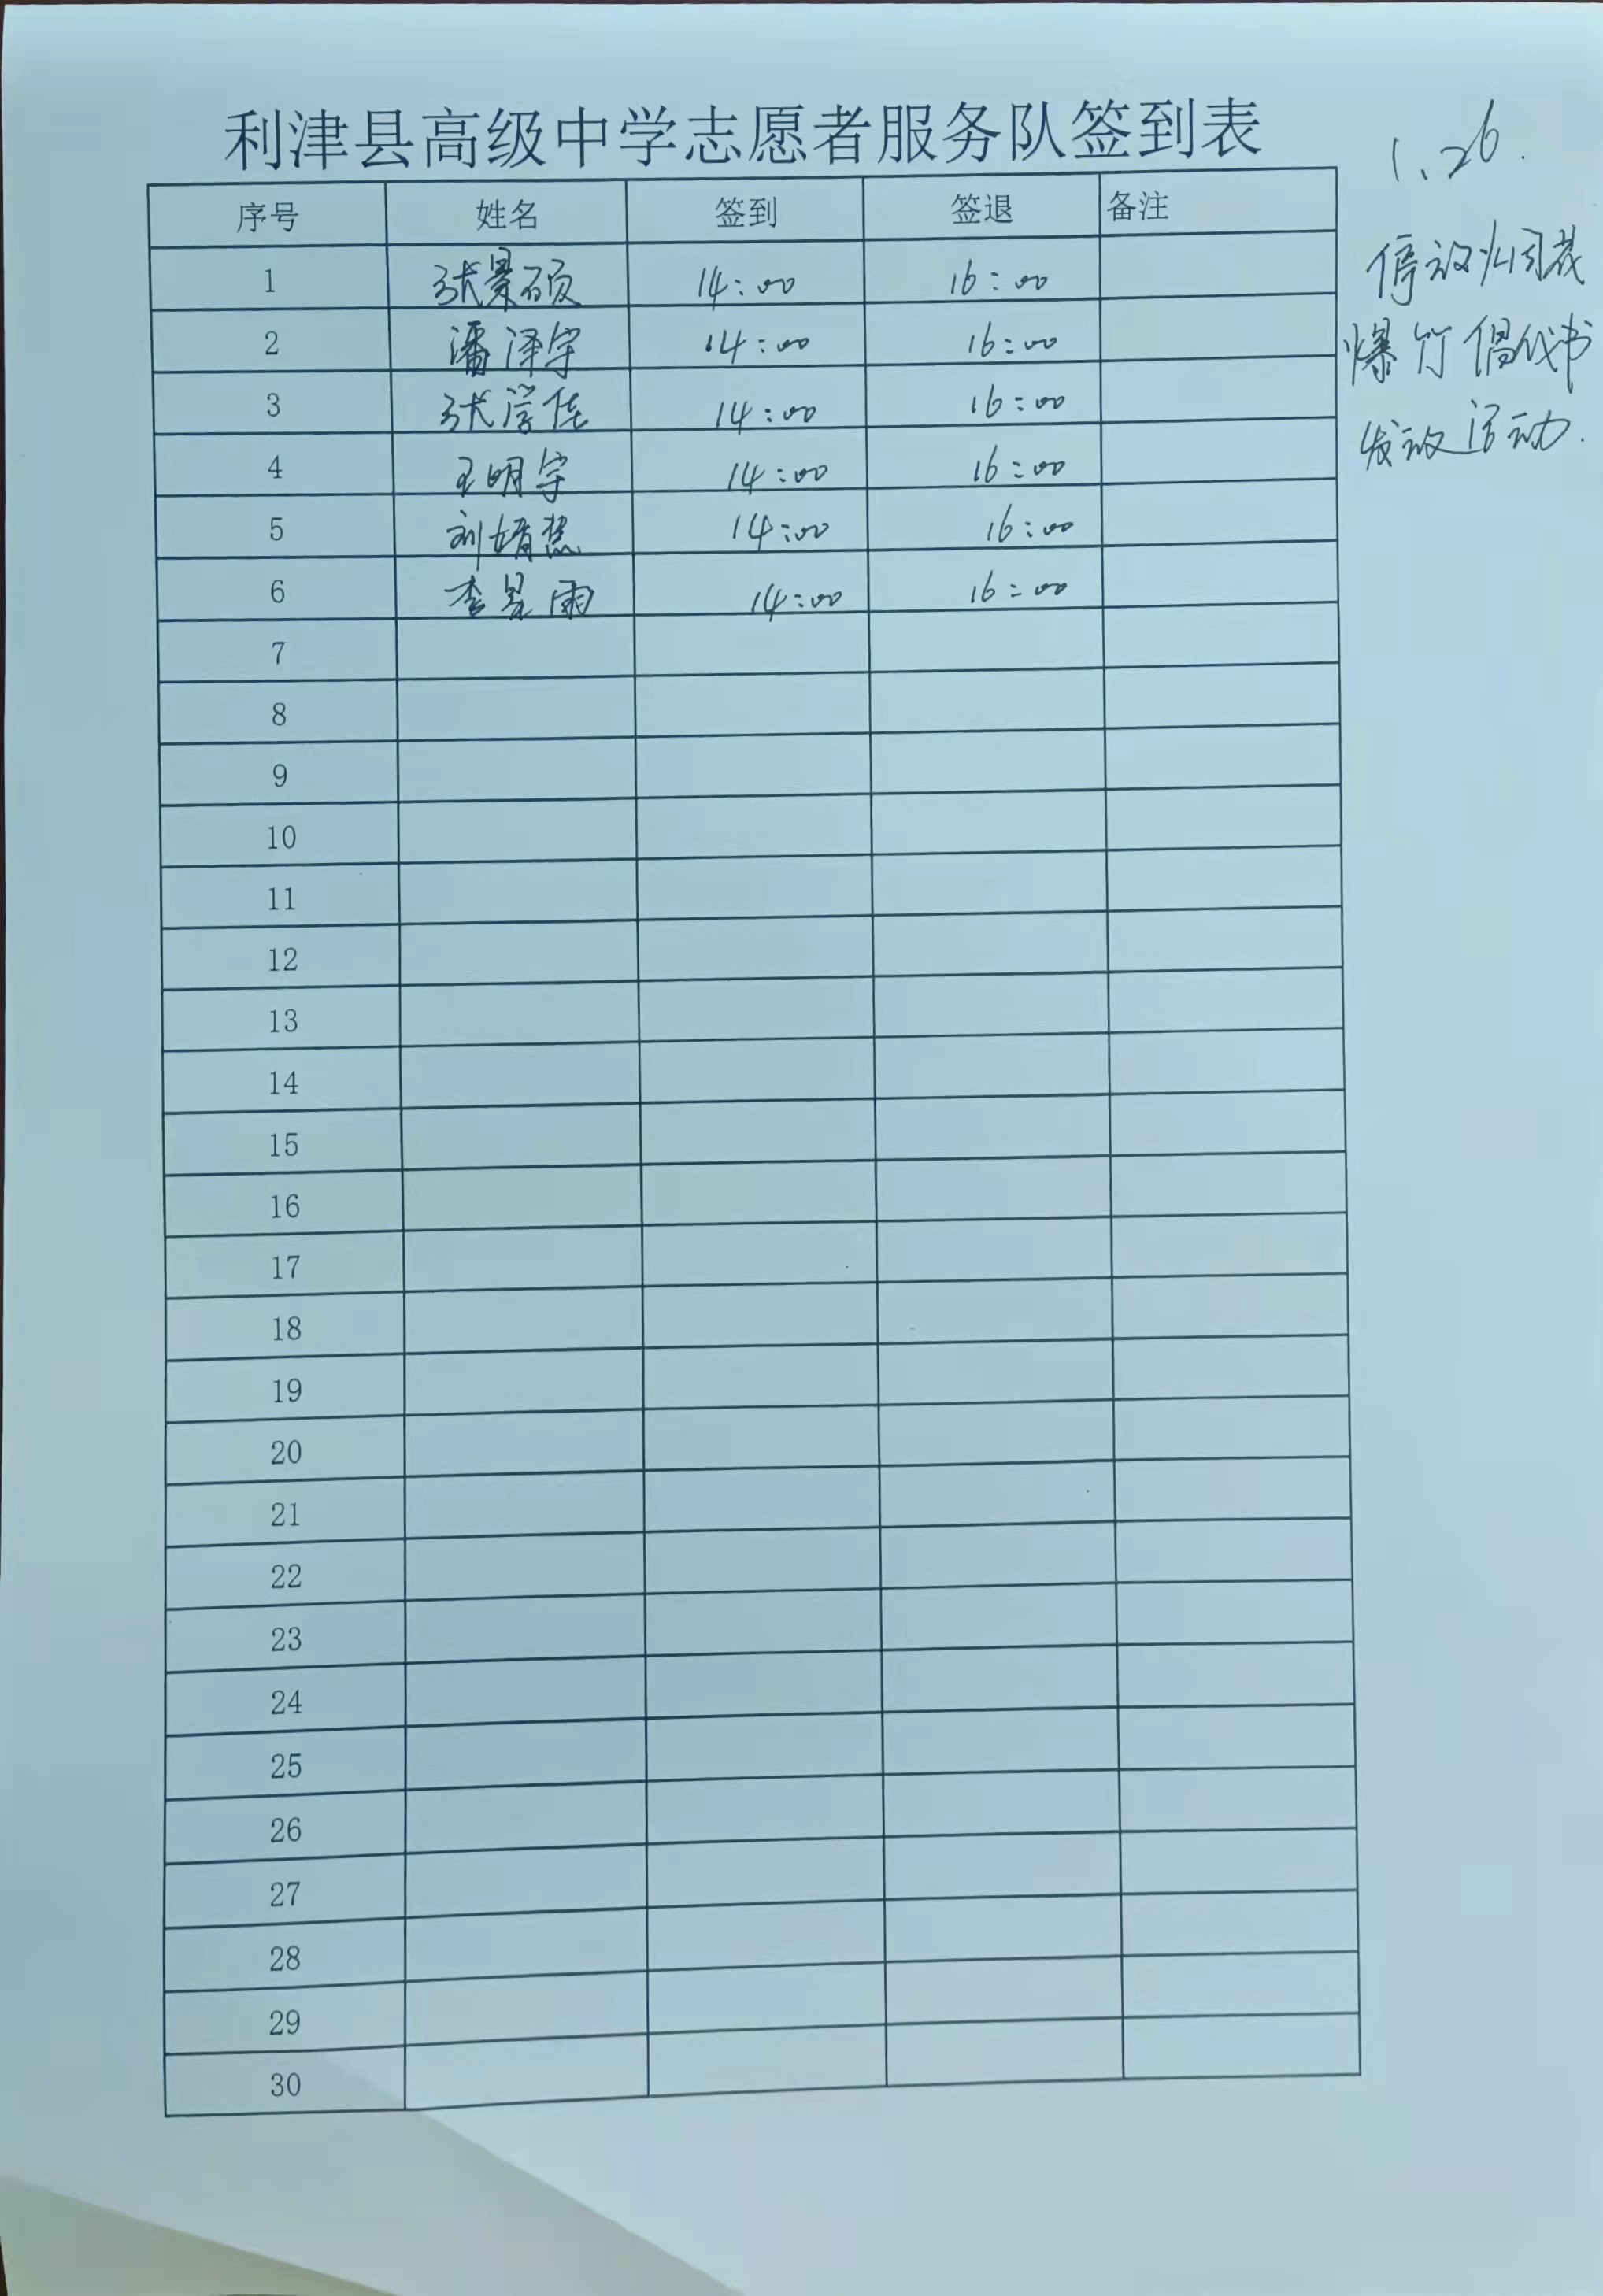 利津县高级中学志愿者服务队签到表
1.26.
停放烟花
爆竹倡议书
发放活动.
序号 姓名 签到 签退 备注
1 张景硕 14:00 16:00
2 潘泽宇 14:00 16:00
3 张学佳 14:00 16:00
4 王明宇 14:00 16:00
5 刘婧 14:00 16:00
6 李昱雨 14:00 16:00
7
8
9
10
11
12
13
14
15
16
17
18
19
20
21
22
23
24
25
26
27
28
29
30